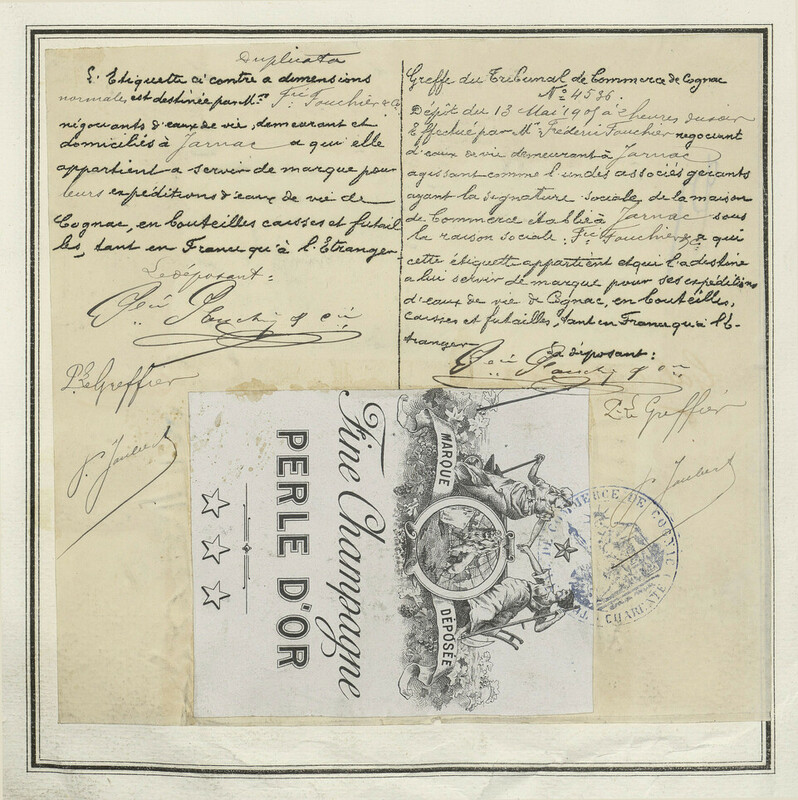 Duplicata
L'Etiquette ci contre a dimensions
normales, est destinée par Mrs Fric Fouchier & Cie
négociants d'eaux de vie, demeurant et
domiciliés à Jarnac a qui elle
appartient a servir de marque pour
leurs expéditions d'eaux de vie de
Cognac, en bouteilles caisses et futail
les, tant en France qu'à l'Etranger
Le déposant:
Fric Fouchier & Cie
P. le Greffier
P. Joubert
Greffe du Tribunal de Commerce de Cognac
No 4536.
Dépôt du 13 Mai 190 à 2 heures du soir
Effectué par Mr Frédéric Fouchier negociant
d'eaux de vie demeurant à Jarnac
agissant comme l'un des associés gérants
ayant la signature sociale, de la maison
de Commerce établie à Jarnac sous
la raison sociale: Fric Fouchier & Cie a qui
cette étiquette appartient et qui l'a destine
a lui servir de marque pour ses expéditions
d'eaux de vie de Cognac, en bouteilles,
caisses et futailles, tant en France qu'à l'E-
tranger
Le déposant:
Fric Fouchier & Cie
P. le Greffier
P. Joubert
MARQUE DÉPOSÉE
Fine Champagne
PERLE D'OR
DE COMMERCE DE COGNAC
CHARENTE